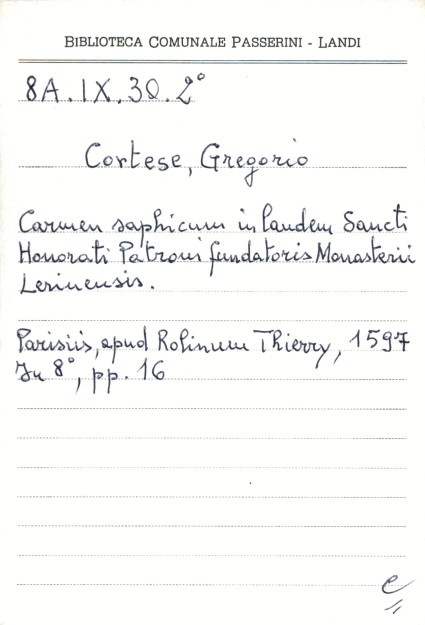 BIBLIOTECA COMUNALE PASSERINI - LANDI
8A.IX.30.2°
Cortese, Gregorio
Carmen saphicum in laudem Sancti
Honorati Patroni fundatoris Monasterii
Lerinensis.
Parisiis, apud Rolinum Thierry, 1597
In 8°, pp. 16
e